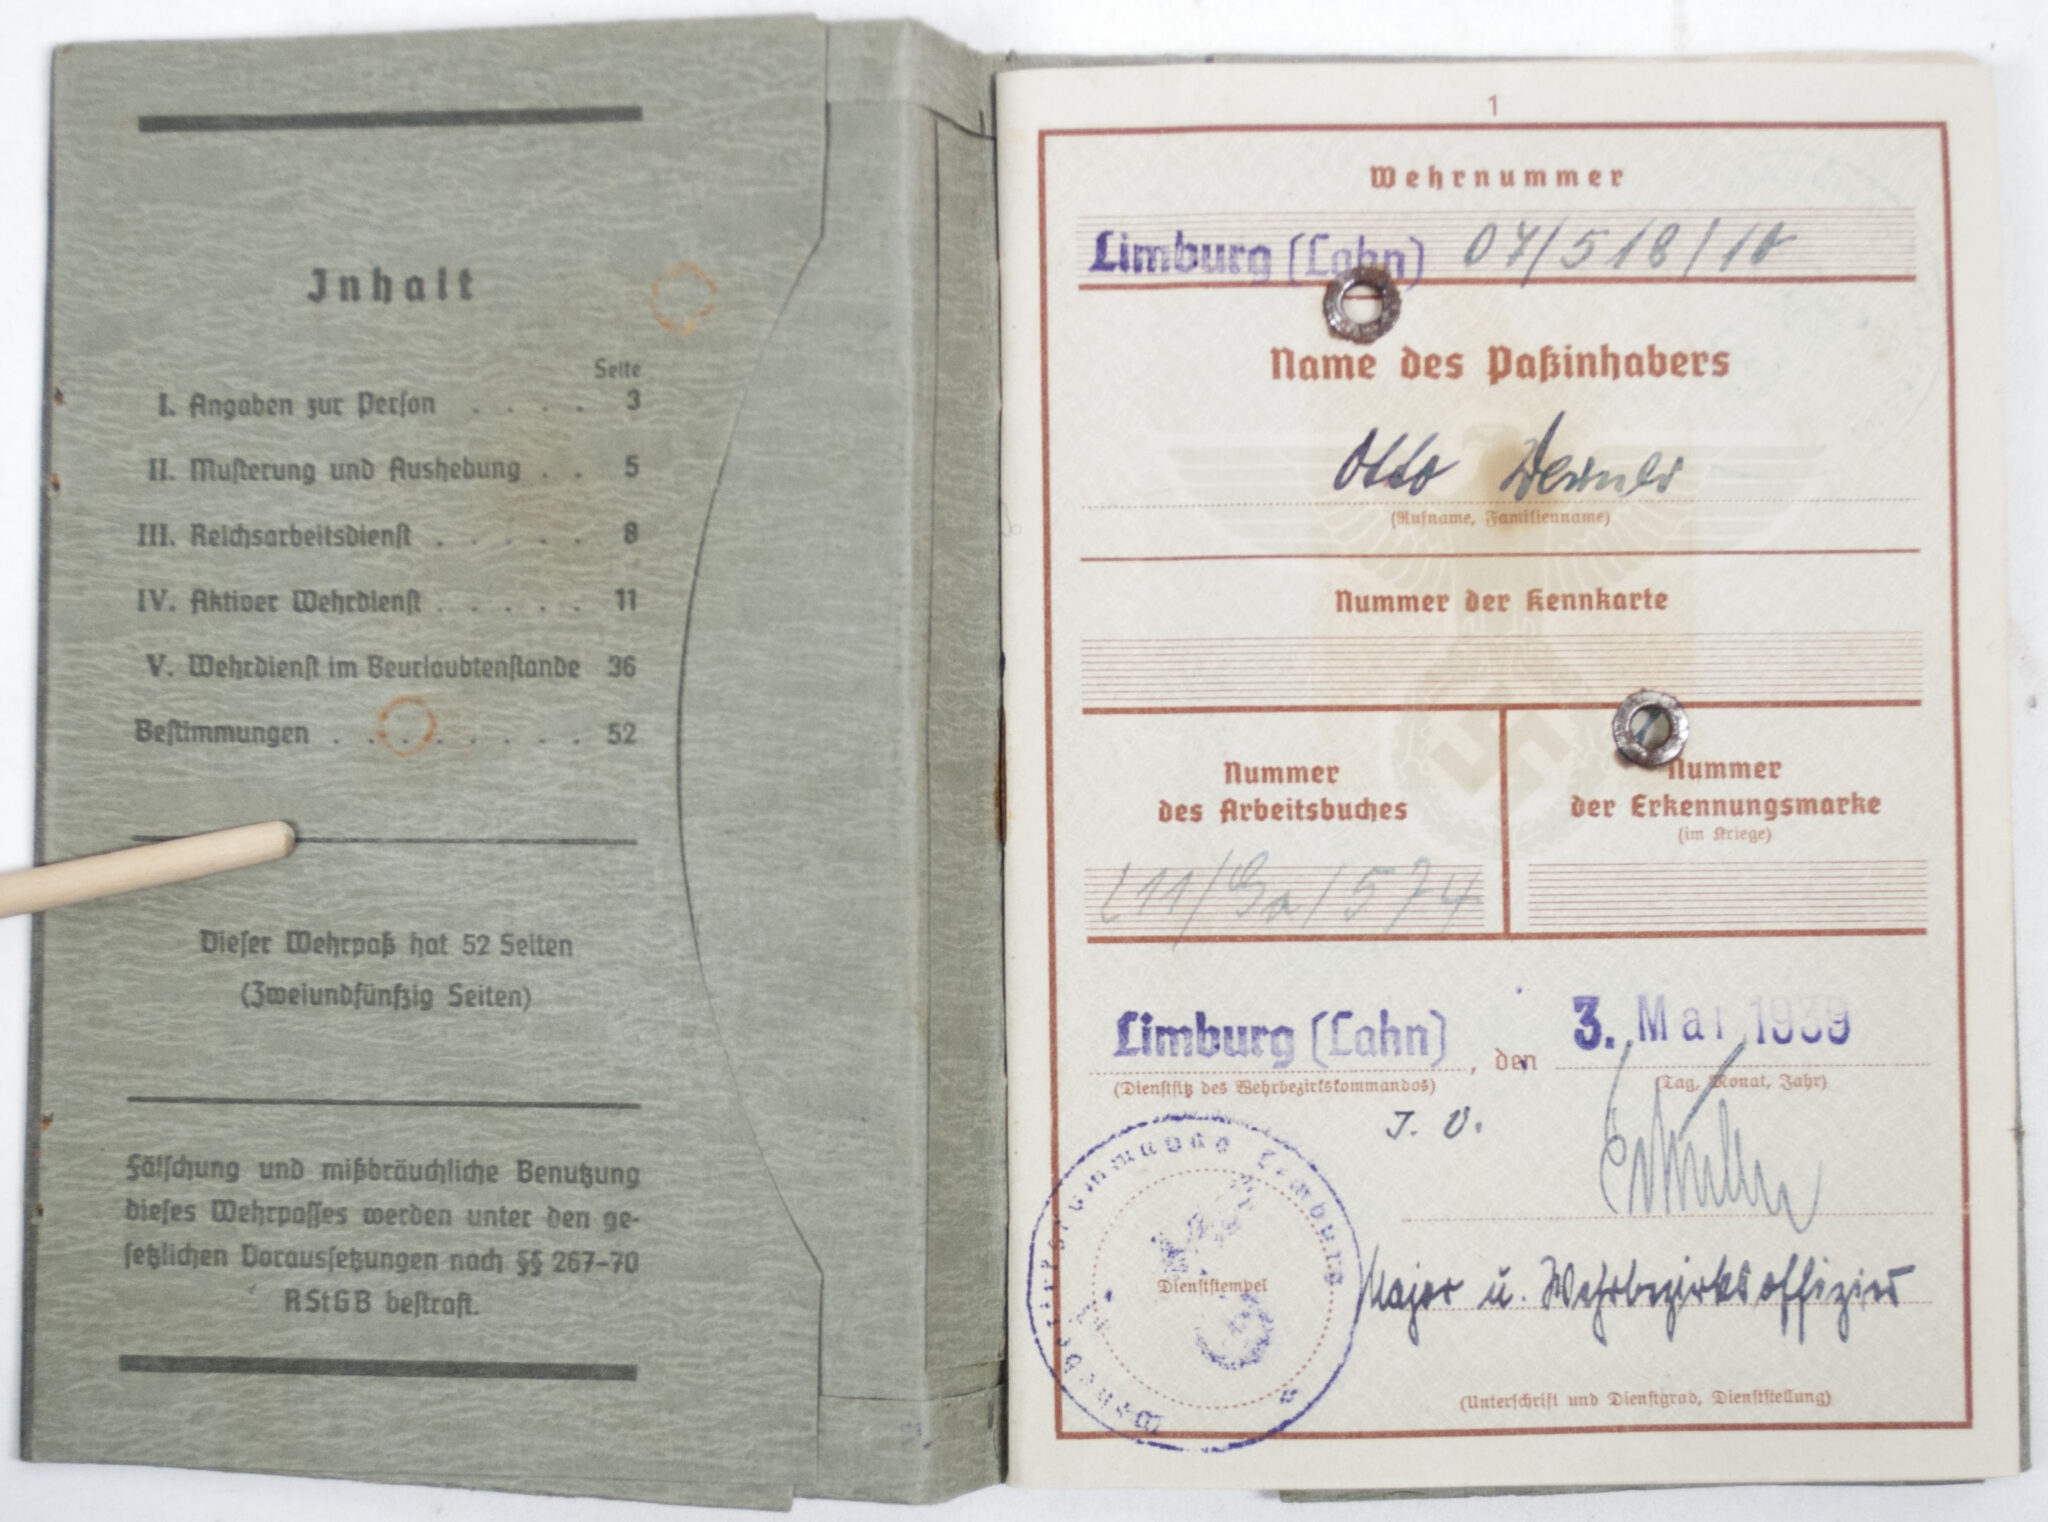 Inhalt
Seite
I. Angaben zur Person . . . . 3
II. Musterung und Aushebung . . 5
III. Reichsarbeitsdienst . . . . . 8
IV. Aktiver Wehrdienst . . . . . 11
V. Wehrdienst im Beurlaubtenstande 36
Bestimmungen . . . . . . . . 52
Dieser Wehrpaß hat 52 Seiten
(Zweiundfünfzig Seiten)
Fälschung und mißbräuchliche Benutzung
dieses Wehrpasses werden unter den ge-
setzlichen Voraussetzungen nach §§ 267-70
RStGB bestraft.
1
Wehrnummer
Limburg (Lahn) 07/518/10
Name des Paßinhabers
Otto Werner
(Rufname, Familienname)
Nummer der Kennkarte
Nummer
des Arbeitsbuches
Nummer
der Erkennungsmarke
(im Kriege)
Limburg (Lahn), den 3. Mai 1939
(Dienstsitz des Wehrbezirkskommandos)
(Tag, Monat, Jahr)
I. V.
Wehrbezirkskommando Limburg
Dienststempel
Major u. Wehrbezirksoffizier
(Unterschrift und Dienstgrad, Dienststellung)